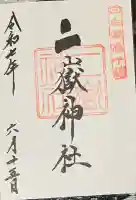 二嶽神社
令和七年
六月十五日